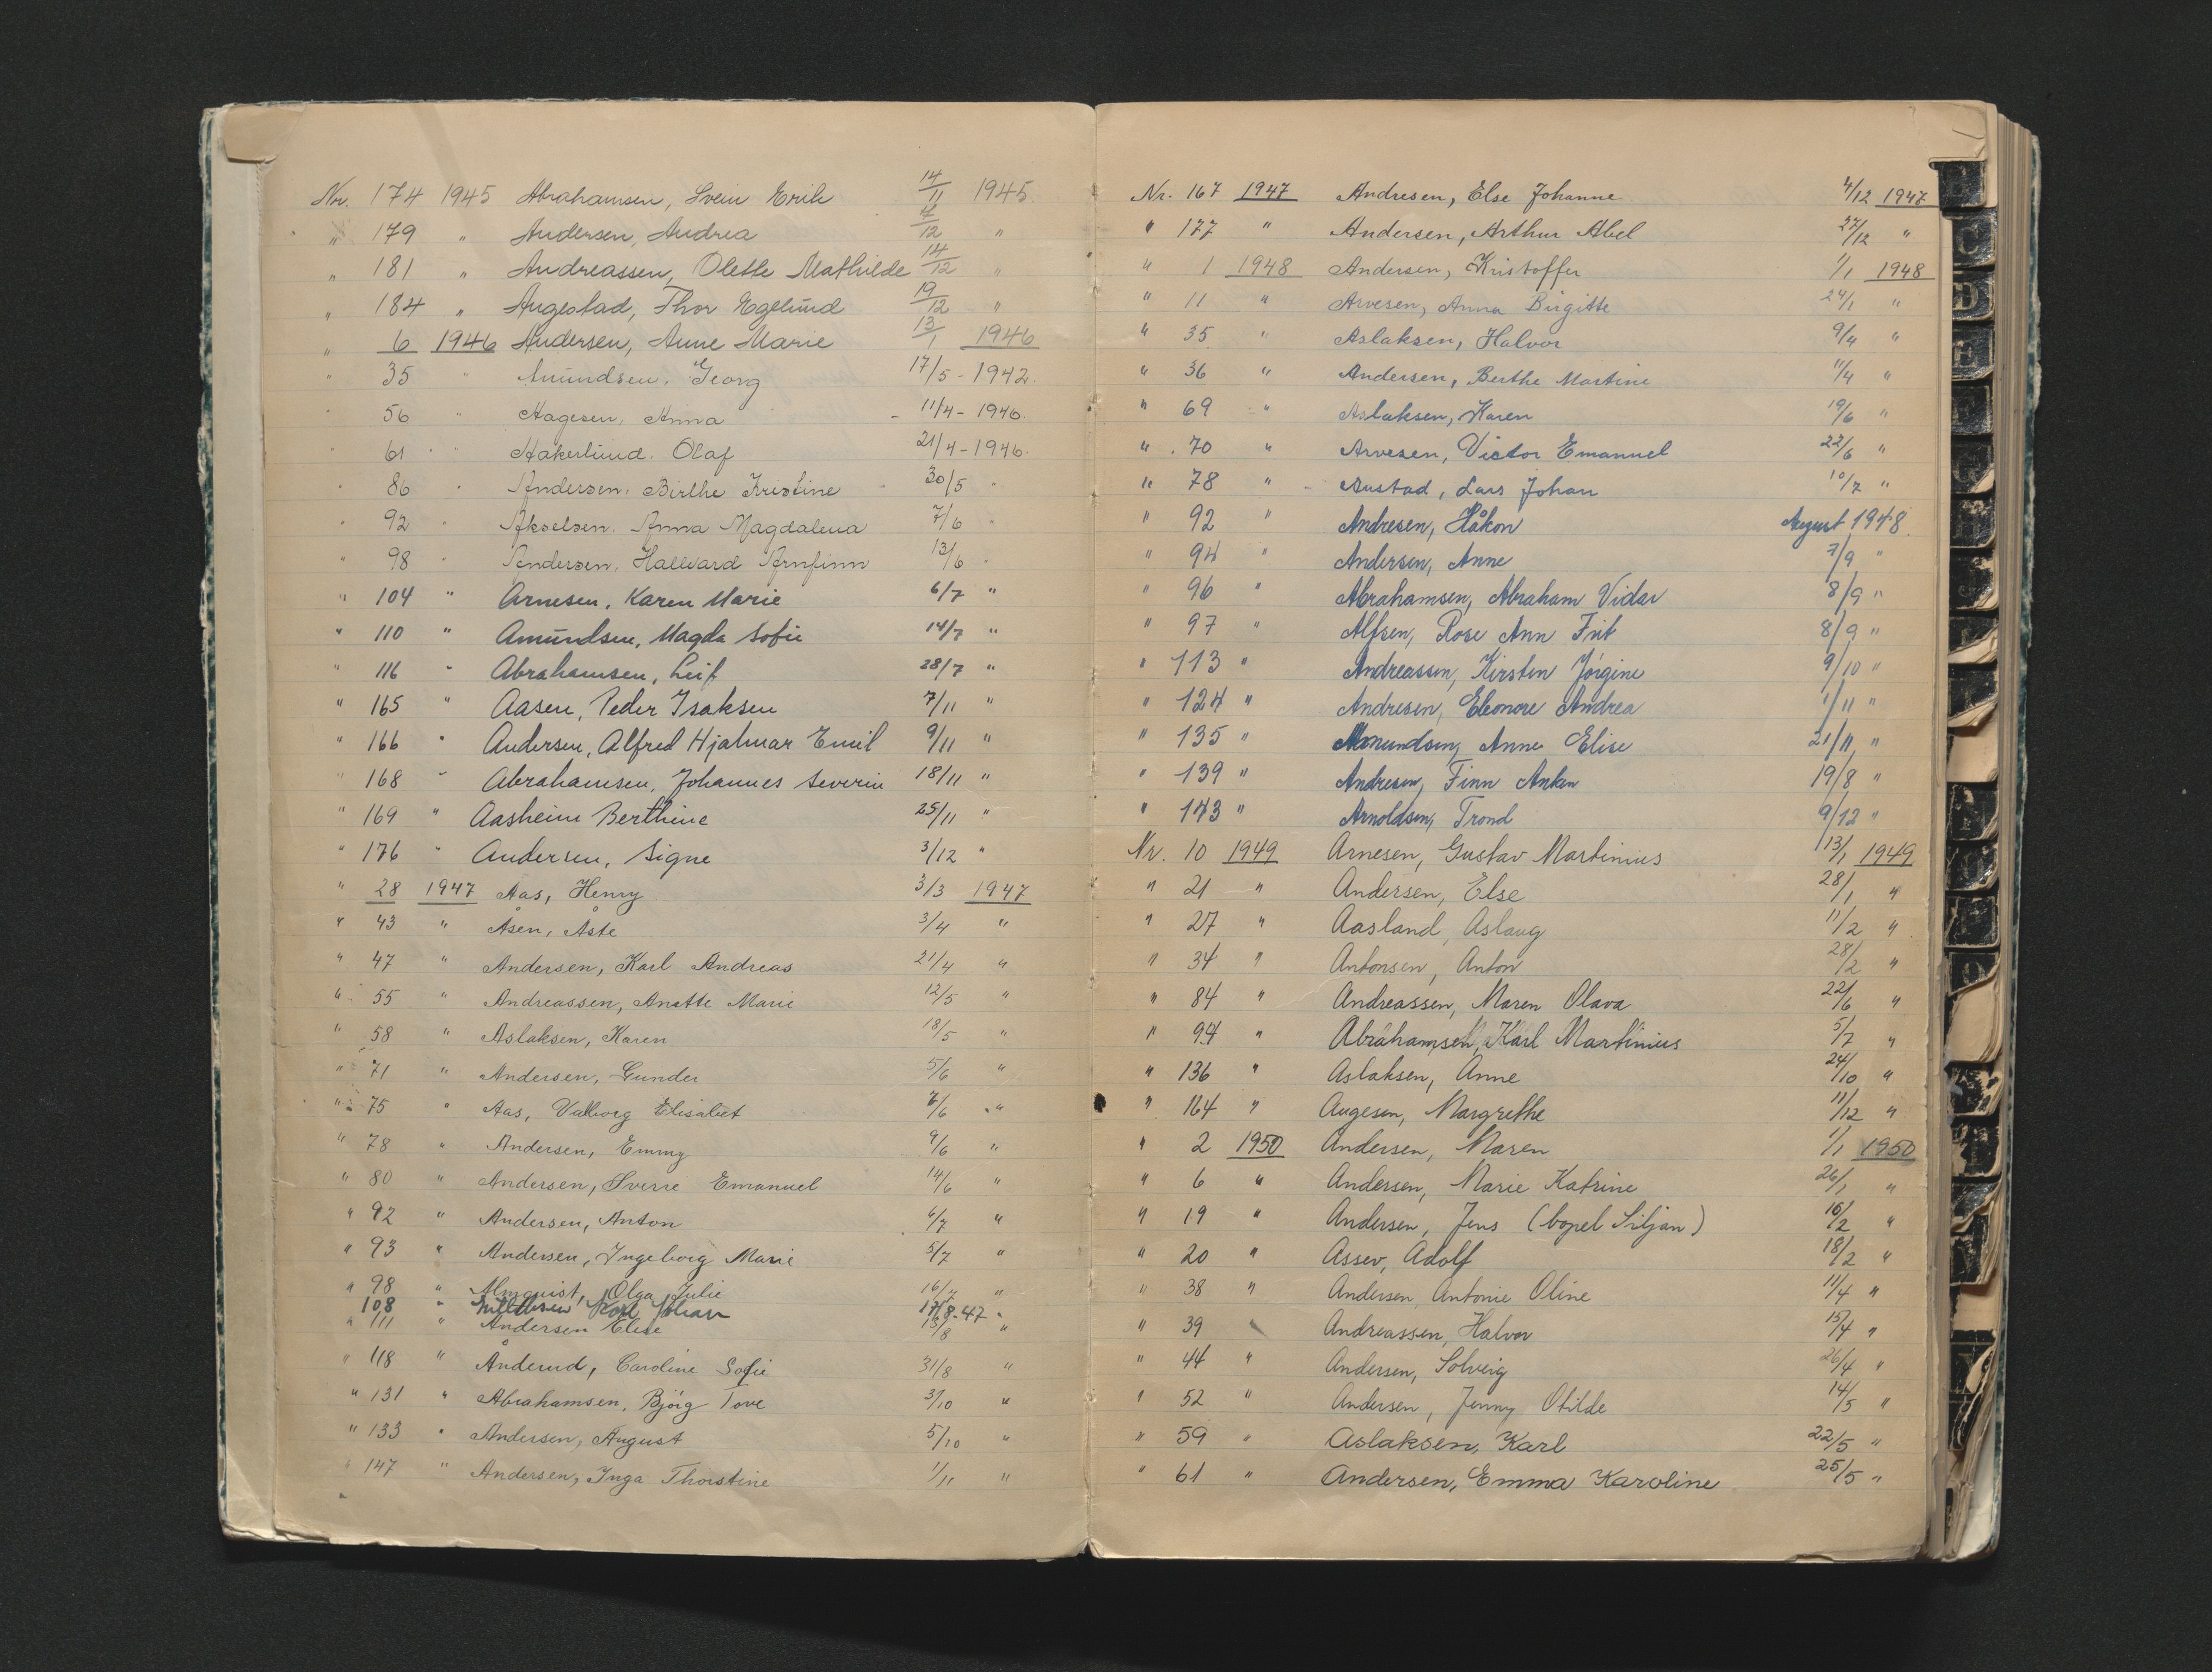 Nr. 174 1945 Abrahamsen, Svein Erik 14/11 1945.
" 179 " Andersen, Andrea 4/12 "
" 181 " Andreassen, Olette Mathilde 14/12 "
" 184 " Augestad, Thor Egelund 19/12 "
" 6 1946 Andersen, Anne Marie 13/1 1946
" 35 " Amundsen. Georg 17/5 - 1942.
" 56 " Aagesen, Anna - 11/4 - 1946.
" 61 " " Aakerlund. Olaf 21/4 - 1946.
" 86 " Andersen. Birthe Kristine 30/5 "
" 92 " Akselsen. Anna Magdalena 7/6 "
" 98 " Andersen. Hallvard Arnfinn 13/6 "
" 104 " Arnesen, Karen Marie 6/7 "
" 110 " Amundsen, Magda Sofie 14/7 "
" 116 " Abrahamsen, Leif 28/7 "
" 165 " Aasen, Peder Isaksen 7/11 "
" 166 " Andersen, Alfred Hjalmar Emil 9/11 "
" 168 " Abrahamsen, Johannes Severin 18/11 "
" 169 " Aasheim Berthine 25/11 "
" 176 " Andersen, Signe 3/12 "
" 28 1947 Aas, Henry 3/3 1947
" 43 " Åsen, Åste 3/4 "
" 47 " Andersen, Karl Andreas 21/4 "
" 55 " Andreassen, Anette Marie 12/5 "
" 58 " Aslaksen, Karen 18/5 "
" 71 " Andersen, Gunder 5/6 "
" 75 " Aas, Valborg Elisabet 7/6 "
" 78 " Andersen, Emmy 9/6 "
" 80 " Andersen, Sverre Emanuel 14/6 "
" 92 " Andersen, Anton 6/7 "
" 93 " Andersen, Ingeborg Marie 5/7 "
" 98 " Almquist, Olga Julie 16/7 "
108 " Karl Johan 17/8-47 "
" 111 " Andersen Elise 15/8 "
" 118 " Ånderud, Caroline Sofie 31/8 "
" 131 " Abrahamsen, Bjørg Tove 3/10 "
" 133 " Andersen, August 5/10 "
" 147 " Andersen, Inga Thorstine 1/11 "
Nr. 167 1947 Andresen, Else Johanne 4/12 1947
" 177 " Andersen, Arthur Abel 27/12 "
" 1 1948 Andersen, Kristoffer 1/1 1948
" 11 " Arvesen, Anna Birgitte 24/1 "
" 35 " Aslaksen, Halvor 9/4 "
" 36 " Andersen, Berthe Martine 11/4 "
" 69 " Aslaksen, Karen 19/6 "
" 70 " Arvesen, Victor Emanuel 22/6 "
" 78 " Austad, Lars Johan 10/7 "
" 92 " Andresen, Håkon August 1948.
" 94 " Andersen, Anne 7/9 "
" 96 " Abrahamsen, Abraham Vidar 8/9 "
" 97 " Alfsen, Rose Ann Frit 8/9 "
" 113 " Andreassen, Kirsten Jørgine 9/10 "
" 124 " Andresen, Eleonore Andrea 1/11 "
" 135 " Amundsen, Anne Elise 21/11 "
" 139 " Andresen, Finn Anker 19/8 "
" 143 " Arnoldsen, Trond 9/12 "
Nr. 10 1949 Arnesen, Gustav Martinius 13/1 1949
" 21 " Andersen, Else 28/1 "
" 27 " Aasland, Aslaug 11/2 "
" 34 " Antonsen, Anton 28/2 "
" 84 " Andreassen, Maren Olava 22/6 "
" 94 " Abrahamsen, Karl Martinius 5/7 "
" 136 " Aslaksen, Anne 24/10 "
" 164 " Augesen, Margrethe 11/12 "
" 2 1950 Andersen, Maren 1/1 1950
" 6 " Andersen, Marie Katrine 26/1 "
" 19 " Andersen, Jens (bopel Siljan) 16/2 "
" 20 " Assev, Adolf 18/2 "
" 38 " Andersen, Antonie Oline 11/4 "
" 39 Andreassen, Halvor 15/4 "
" 44 " Andersen, Solveig 26/4 "
" 52 " Andersen, Jenny Otilde 14/5 "
" 59 " Aslaksen, Karl 22/5 "
" 61 " Andersen, Emma Karoline 25/5 "
B
C
D
E
F